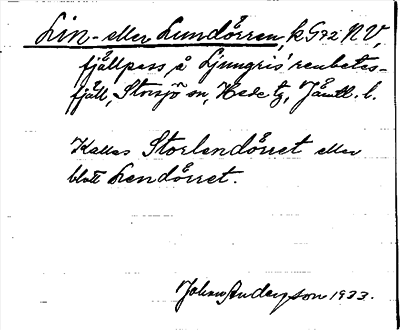 Lin- eller Lundörren, k G72 NV,
fjällpass å Ljungris' renbetes-
fjäll, Storsjö sn, Hede tg, Jämtl. l.
Kallas Storlendörret eller
blott Lendörret.
Johan Anderson 1933.